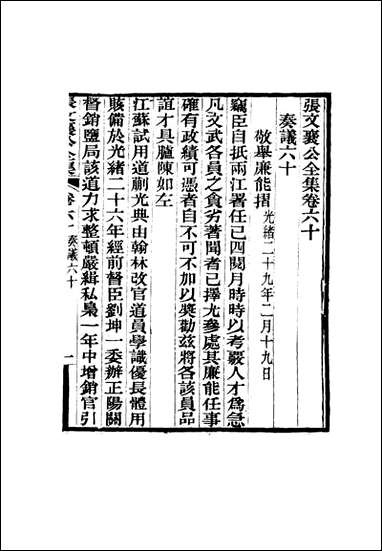 張文襄公全集卷六十
奏議六十
敬舉廉能摺光緒二十九年二月十九日
竊臣自抵兩江署任已四閱月時時以考覈人才爲急
凡文武各員之貪劣著聞者已擇尤參處其廉能任事
確有政績可憑者自不可不加以奬勸茲將各該員品
誼才具臚陳如左
江蘇試用道蒯光典由翰林改官道員學識優長體用
賅備於光緒二十六年經前督臣劉坤一委辦正陽關
督銷鹽局該道力求整頓嚴緝私梟一年中增銷官引
張文襄公全集
卷六十
奏議六十
一